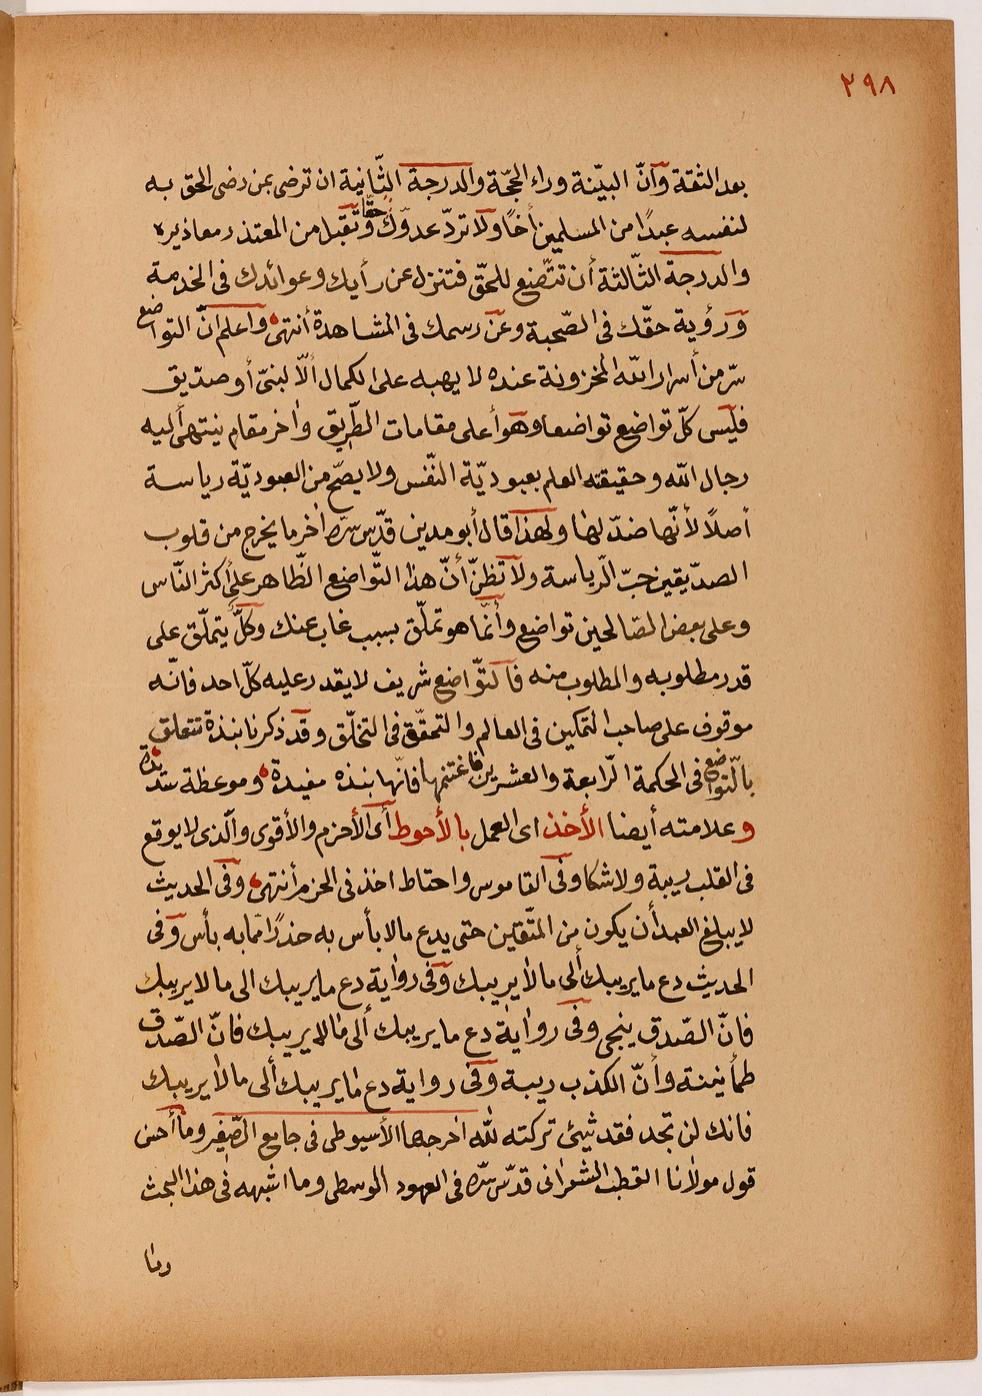 ٢٩٨
بعد الثقة وأنّ البيّنة وراء الحجّة والدرجة الثّانية ان ترضى بمن رضى الحق به
لنفسه عبدًا من المسلمين أخًا ولا تردّ عدوّك حقّا وتقبل من المعتذر معاذيره
والدرجة الثّالثة أن تتّضع للحقّ فتنزل عن رأيك وعوائدك فى الخدمة
ورؤية حقّك فى الصّحبة وعن رسمك فى المشاهدة أنتهى واعلم انّ التواضع
سرّ من أسرار اللّه المخزونة عنده لا يهبه على الكمال ألّا لنبىّ أو صدّيق
فليس كلّ تواضع تواضعا وهو أعلى مقامات الطّريق واٰخر مقام ينتهى أليه
رجال اللّه وحقيقته العلم بعبوديّة النّفس ولا يصحّ من العبوديّة رياسة
أصلاً لأنّها ضدّ لها ولهذا قال أبو مدين قدّس سرّه اٰخر ما يخرج من قلوب
الصدّيقين حبّ الرّياسة ولا تظنّ أنّ هذا التّواضع الظّاهر على أكثر النّاس
وعلى بعض الصّالحين تواضع وأنّما هو تملّق بسبب غاب عنك وكلّ يتملّق على
قدر مطلوبه والمطلوب منه فالتّواضع شريف لا يقدر عليه كلّ احد فانّه
موقوف على صاحب التمكين فى العالم والتحقّق فى التخلّق وقد ذكرنا نبذة تتعلق
بالّتواضع فى الحكمة الرّابعة والعشرين فاغتنمها فانّها نبذه مفيدة وموعظة سديدة
وعلامته أيضا الأخذ اى العمل بالأحوط أى الأحزم والأقوى والّذى لا يوقع
فى القلب ريبة ولا شكا وفى القاموس واحتاط اخذ فى الحزم أنتهى وفى الحديث
لا يبلغ العبد أن يكون من المتّقين حتى يدع ما لا بأس به حذرًا ممّا به بأس وفى
الحديث دع ما يريبك ألى ما لا يريبك وفى رواية دع ما يريبك الى ما لا يريبك
فانّ الصّدق ينجى وفى رواية دع ما يريبك ألى ما لا يريبك فانّ الصّدق
طمأنينة وأنّ الكذب ريبة وفى رواية دع ما يريبك ألى ما لا يريبك
فانك لن تجد فقد شيئ تركته للّه اخرجها الأسيوطى فى جامع الصّغير وما أحسن
قول مولانا القطب الشعرانى قدّس سرّه فى العهود الوسطى وما اشبهه فى هذا البحث